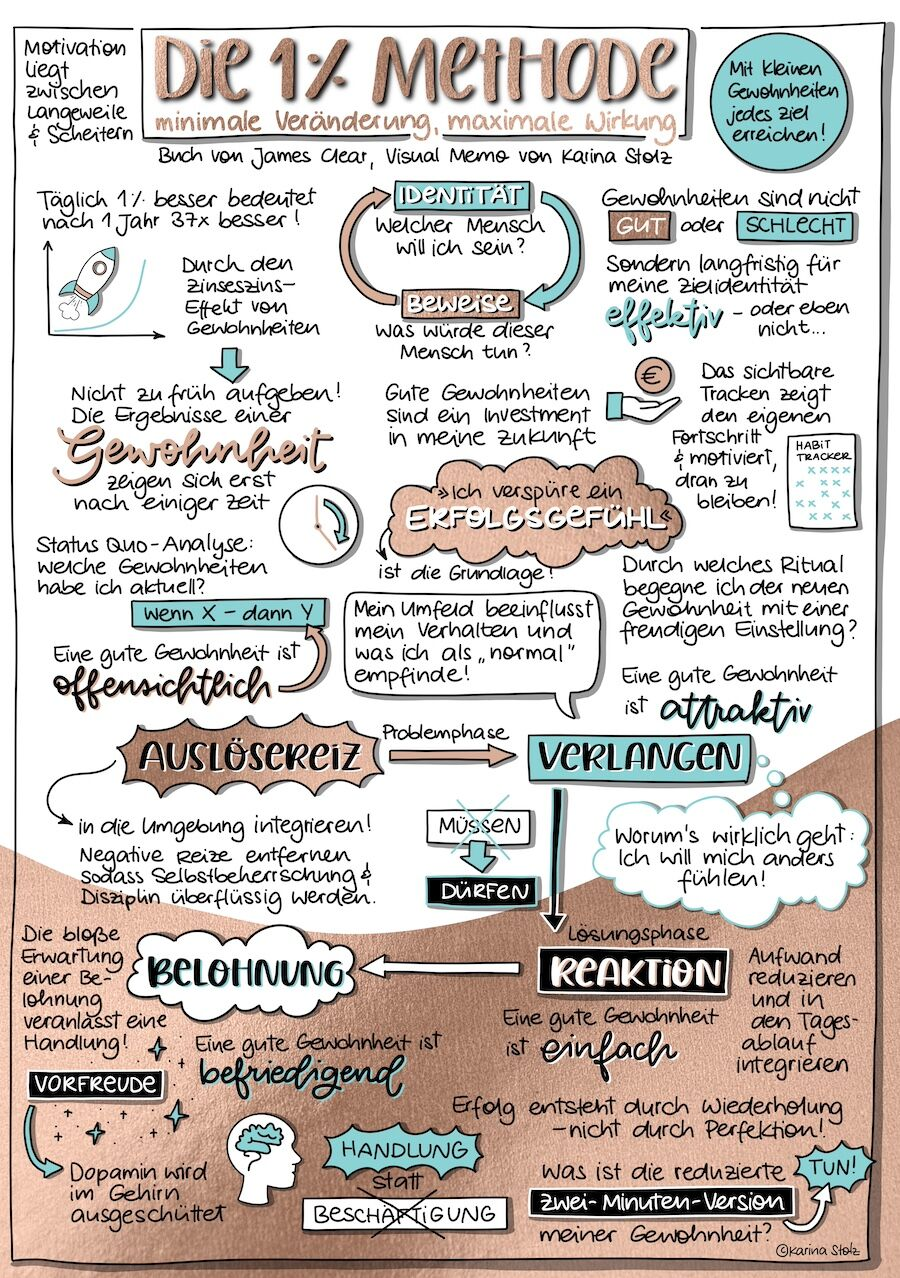 Motivation
liegt
zwischen
Langeweile
& Scheitern
Die 1% Methode
minimale Veränderung, maximale Wirkung
Mit kleinen
Gewohnheiten
jedes Ziel
erreichen!
Buch von James Clear, Visual Memo von Karina Stolz
Täglich 1% besser bedeutet
nach 1 Jahr 37x besser!
Durch den
Zinseszins-
Effekt von
Gewohnheiten
IDENTITÄT
Welcher Mensch
will ich sein?
BEWEISE
was würde dieser
Mensch tun?
Gewohnheiten sind nicht
GUT oder SCHLECHT
Sondern langfristig für
meine Zielidentität
effektiv – oder eben
nicht...
Nicht zu früh aufgeben!
Die Ergebnisse einer
Gewohnheit
zeigen sich erst
nach einiger Zeit
Gute Gewohnheiten
sind ein Investment
in meine Zukunft
€
Das sichtbare
Tracken zeigt
den eigenen
Fortschritt
& motiviert,
dran zu
bleiben!
HABIT
TRACKER
»Ich verspüre ein
ERFOLGSGEFÜHL«
ist die Grundlage!
Status Quo-Analyse:
welche Gewohnheiten
habe ich aktuell?
wenn X – dann Y
Eine gute Gewohnheit ist
offensichtlich
Mein Umfeld beeinflusst
mein Verhalten und
was ich als „normal"
empfinde!
Durch welches Ritual
begegne ich der neuen
Gewohnheit mit einer
freudigen Einstellung?
Eine gute Gewohnheit
ist attraktiv
AUSLÖSEREIZ
Problemphase
VERLANGEN
in die Umgebung integrieren!
Negative Reize entfernen
sodass Selbstbeherrschung &
Disziplin überflüssig werden.
MÜSSEN
DÜRFEN
Worum's wirklich geht:
Ich will mich anders
fühlen!
Die bloße
Erwartung
einer Be-
lohnung
veranlasst eine
Handlung!
BELOHNUNG
Lösungsphase
REAKTION
Aufwand
reduzieren
und in
den Tages-
ablauf
integrieren
Eine gute Gewohnheit ist
befriedigend
Eine gute Gewohnheit
ist einfach
VORFREUDE
Dopamin wird
im Gehirn
ausgeschüttet
Erfolg entsteht durch Wiederholung
– nicht durch Perfektion!
HANDLUNG
statt
BESCHÄFTIGUNG
Was ist die reduzierte
Zwei-Minuten-Version
meiner Gewohnheit?
TUN!
©Karina Stolz